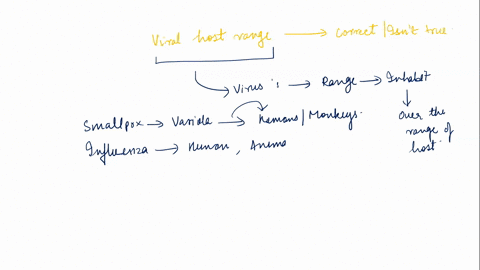 Viral host range → correct / Isn't true.
Virus's → Range → Inhabit
Smallpox → Variola → Humans / Monkeys.
Over the range of host.
Influenza → Human, Anima